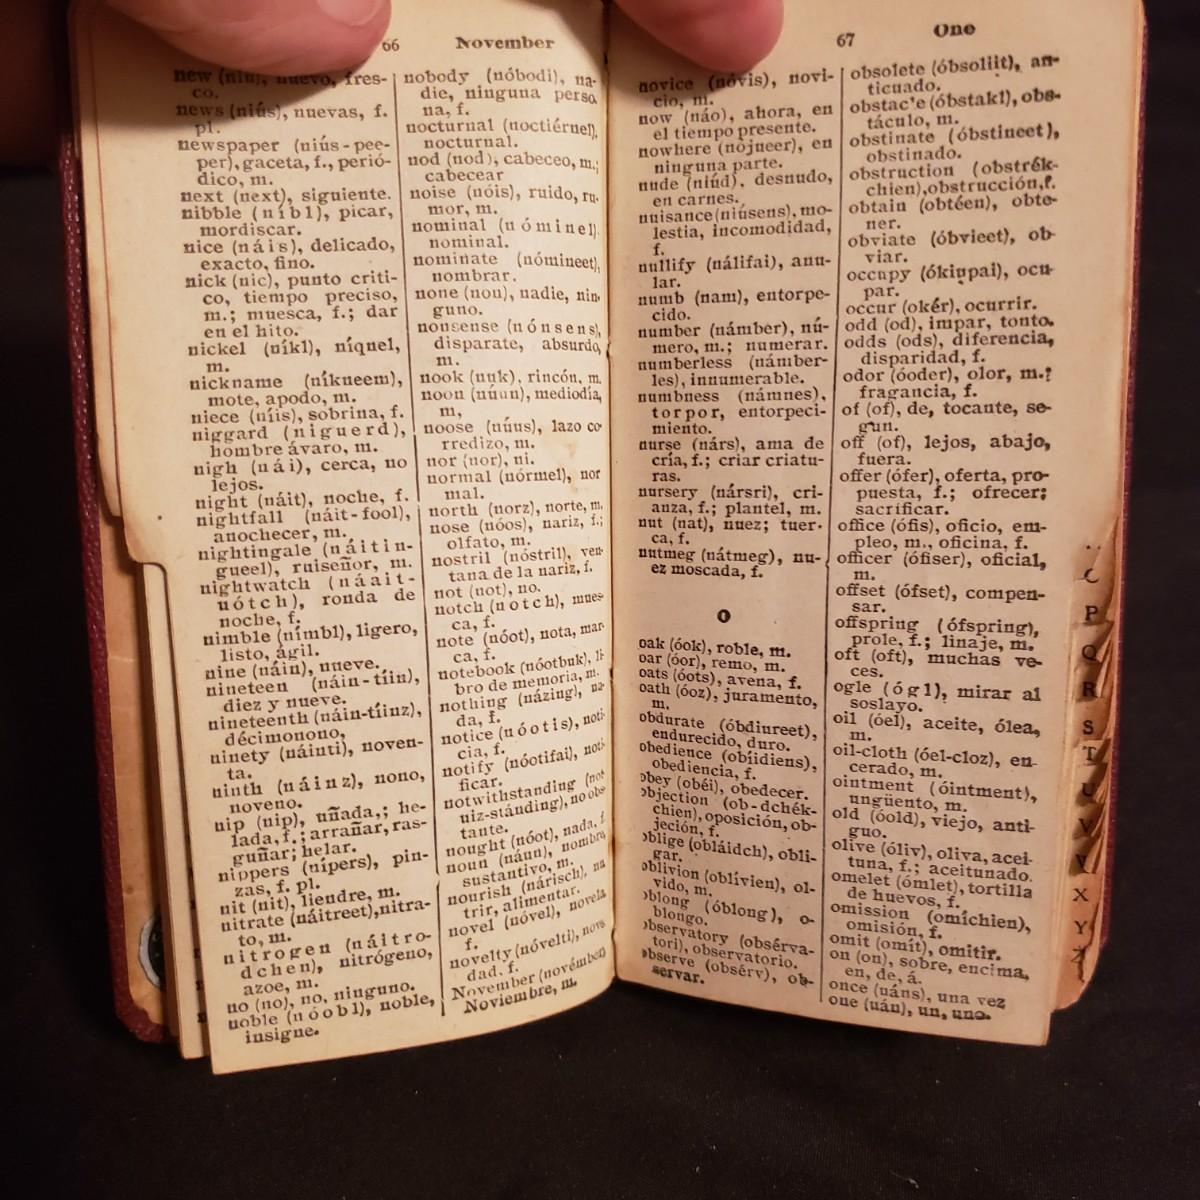 66 November
new (niú), nuevo, fres-
co.
news (niús), nuevas, f.
pl.
newspaper (niús-pee-
per), gaceta, f., perió-
dico, m.
next (next), siguiente.
nibble (níbl), picar,
mordiscar.
nice (náis), delicado,
exacto, fino.
nick (nic), punto criti-
co, tiempo preciso,
m.; muesca, f.; dar
en el hito.
nickel (níkl), níquel,
m.
nickname (níkneem),
mote, apodo, m.
niece (níis), sobrina, f.
niggard (niguerd),
hombre ávaro, m.
nigh (nái), cerca, no
lejos.
night (náit), noche, f.
nightfall (náit-fool),
anochecer, m.
nightingale (náitin-
gueel), ruiseñor, m.
nightwatch (náait-
uótch), ronda de
noche, f.
nimble (nímbl), ligero,
listo, ágil.
nine (náin), nueve.
nineteen (náin-tíin),
diez y nueve.
nineteenth (náin-tíinz),
décimonono,
ninety (náinti), noven-
ta.
ninth (náinz), nono,
noveno.
nip (nip), uñada,; he-
lada, f.; arrañar, ras-
guñar; helar.
nippers (nípers), pin-
zas, f. pl.
nit (nit), liendre, m.
nitrate (náitreet), nitra-
to, m.
nitrogen (náitro-
dchen), nitrógeno,
azoe, m.
no (no), no, ninguno.
noble (nóobl), noble,
insigne.
nobody (nóbodi), na-
die, ninguna perso
na, f.
nocturnal (noctiérnel),
nocturnal.
nod (nod), cabeceo, m.;
cabecear
noise (nóis), ruido, ru-
mor, m.
nominal (nóminel)
nominal.
nominate (nómineet),
nombrar.
none (nou), nadie, nin-
guno.
nonsense (nónsens),
disparate, absurdo,
m.
nook (nuk), rincón, m.
noon (núun), mediodía,
m,
noose (núus), lazo co
rredizo, m.
nor (nor), ni.
normal (nórmel), nor
mal.
north (norz), norte, m.
nose (nóos), nariz, f.;
olfato, m.
nostril (nóstril), ven-
tana de la nariz, f.
not (not), no.
notch (notch), mues-
ca, f.
note (nóot), nota, mar-
ca, f.
notebook (nóotbuk), li-
bro de memoria, m.
nothing (názing), na-
da, f.
notice (nóotis), noti-
cia, f.
notify (nóotifai), noti-
ficar.
notwithstanding (not
uiz-stánding), no obs-
tante.
nought (nóot), nada, f.
noun (náun), nombre,
sustantivo, m.
nourish (nárisch), nu
trir, alimentar.
novel (nóvel), novela
f.
novelty (nóvelti), nove
dad, f.
November (novémber)
Noviembre, m.
67 One
novice (nóvis), novi-
cio, m.
now (náo), ahora, en
el tiempo presente.
nowhere (nójueer), en
ninguna parte.
nude (niúd), desnudo,
en carnes.
nuisance (niúsens), mo-
lestia, incomodidad,
f.
nullify (nálifai), anu-
lar.
numb (nam), entorpe-
cido.
number (námber), nú-
mero, m.; numerar.
numberless (námber-
les), innumerable.
numbness (námnes),
torpor, entorpeci-
miento.
nurse (nárs), ama de
cría, f.; criar criatu-
ras.
nursery (nársri), cri-
anza, f.; plantel, m.
nut (nat), nuez; tuer-
ca, f.
nutmeg (nátmeg), nu-
ez moscada, f.
O
oak (óok), roble, m.
oar (óor), remo, m.
oats (óots), avena, f.
oath (óoz), juramento,
m.
obdurate (óbdiureet),
endurecido, duro.
obedience (obíidiens),
obediencia, f.
obey (obéi), obedecer.
objection (ob-dchék-
chien), oposición, ob-
jeción, f.
oblige (obláidch), obli-
gar.
oblivion (oblívien), ol-
vido, m.
oblong (óblong), o-
blongo.
observatory (obsérva-
tori), observatorio.
observe (obsérv), ob-
servar.
obsolete (óbsoliit), an-
ticuado.
obstac'e (óbstakl), obs-
táculo, m.
obstinate (óbstineet),
obstinado.
obstruction (obstrék-
chien), obstrucción, f.
obtain (obtéen), obte-
ner.
obviate (óbvieet), ob-
viar.
occupy (ókiupai), ocu-
par.
occur (okér), ocurrir.
odd (od), impar, tonto.
odds (ods), diferencia,
disparidad, f.
odor (óoder), olor, m.;
fragancia, f.
of (of), de, tocante, se-
gun.
off (of), lejos, abajo,
fuera.
offer (ófer), oferta, pro-
puesta, f.; ofrecer;
sacrificar.
office (ófis), oficio, em-
pleo, m., oficina, f.
officer (ófiser), oficial,
m.
offset (ófset), compen-
sar.
offspring (ófspring),
prole, f.; linaje, m.
oft (oft), muchas ve-
ces.
ogle (ógl), mirar al
soslayo.
oil (óel), aceite, ólea,
m.
oil-cloth (óel-cloz), en-
cerado, m.
ointment (óintment),
ungüento, m.
old (óold), viejo, anti-
guo.
olive (óliv), oliva, acei-
tuna, f.; aceitunado.
omelet (ómlet), tortilla
de huevos, f.
omission (omíchien),
omisión, f.
omit (omít), omitir.
on (on), sobre, encima,
en, de, á.
once (uáns), una vez
one (uán), un, uno.
P
Q
R
S
T
U
V
W
X
Y
Z